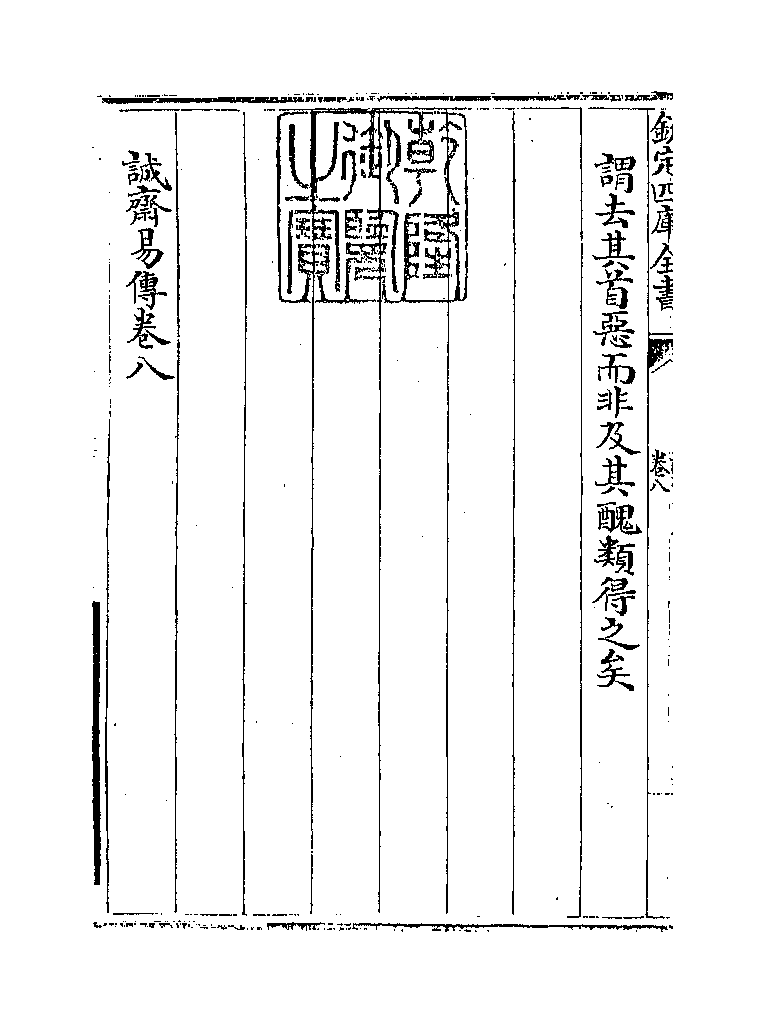 欽定四庫全書
卷八
謂去其首惡而非及其醜類得之矣
乾隆御覽之寶
誠齋易傳卷八